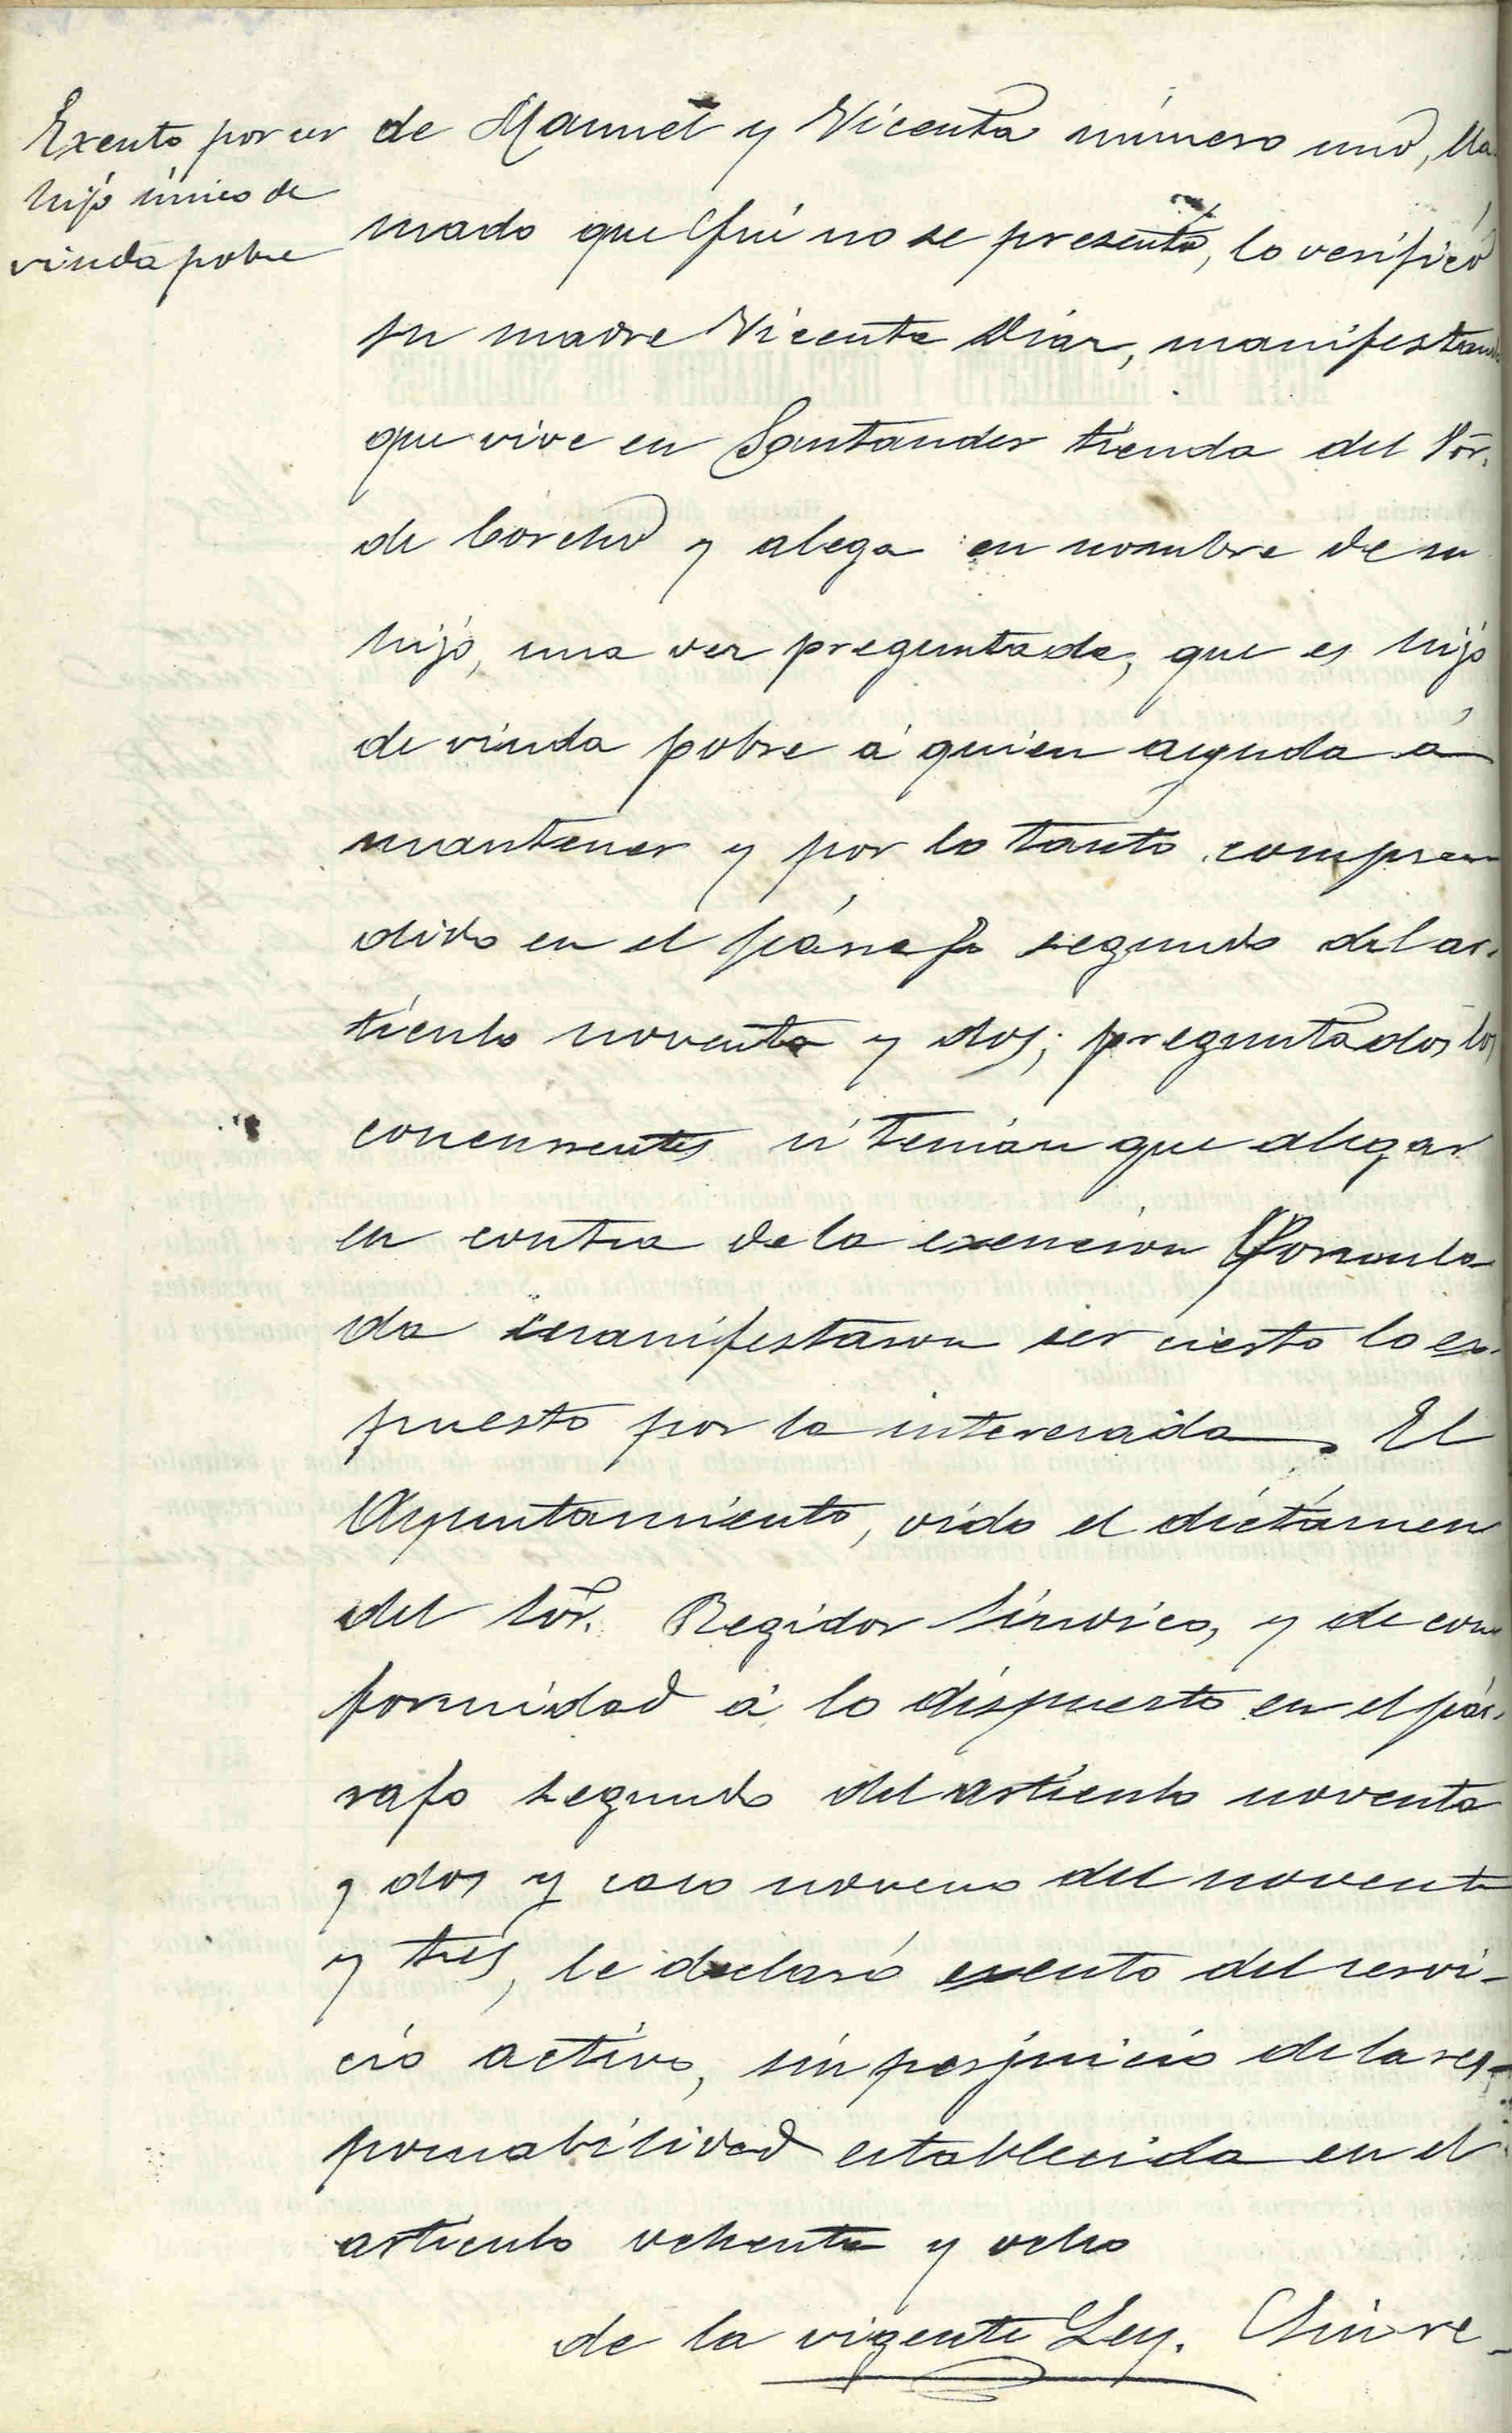 Exento por ser
hijo único de
viuda pobre
de Manuel y Vicenta número uno, lla-
mado que fué no se presentó, lo verificó
su madre Vicenta Diaz, manifestando
que vive en Santander tienda del Sor.
de Corcho y alega en nombre de su
hijo, una vez preguntada, que es hijo
de viuda pobre á quien ayuda á
mantener y por lo tanto compren
dido en el párrafo segundo del ar-
tículo noventa y dos; preguntados los
concurrentes si tenían que alegar
en contra de la exencion formula
da manifestaron ser cierto lo ex-
puesto por la interesada. El
Ayuntamiento, oido el dictámen
del Sor. Regidor Síndico, y de con
formidad á lo dispuesto en el pár-
rafo segundo del artículo noventa
y dos y caso noveno del noventa
y tres, le declaró exento del servi-
cio activo, sin perjuicio de la res-
ponsabilidad establecida en el
artículo ochenta y ocho
de la vigente Ley.